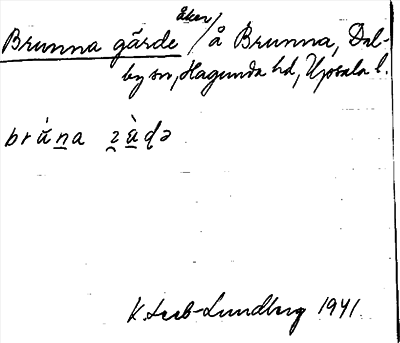 Brunna gärde åker/ å Brunna, Dal-
by sn, Hagunda hd, Upsala l.
brùn̲a z̬ầ̲ɖə
K. Leeb-Lundberg 1941